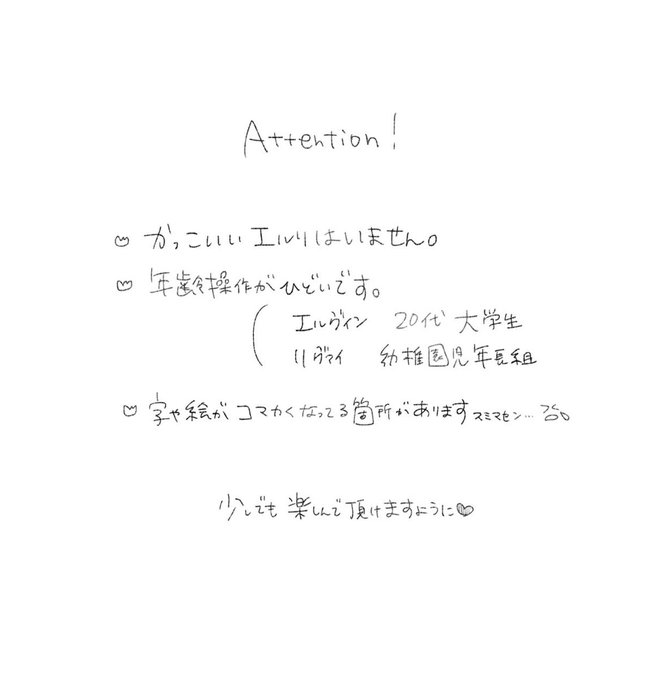 Attention!
かっこいいエルリはいません。
年齢操作がひどいです。
エルヴィン 20代 大学生
リヴァイ 幼稚園児年長組
字や絵がコマカくなってる箇所があります スミマセン…
少しでも楽しんで頂けますように♡